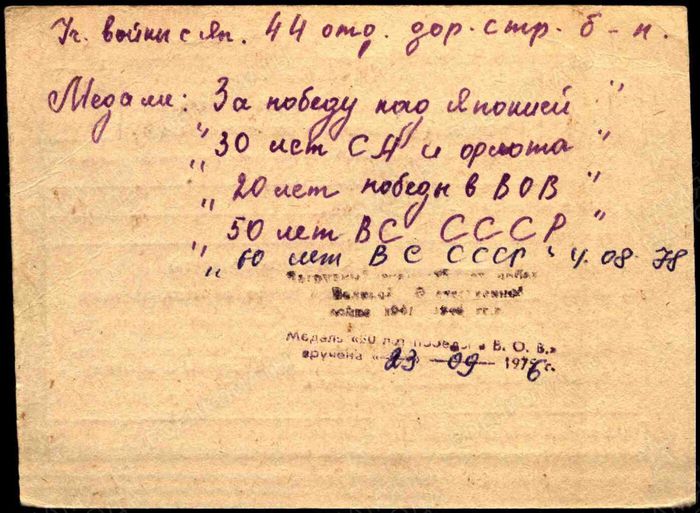 Уч. войны с Яп. 44 отд. дор. стр. б-н.
Медали: За победу над Японией "
" 30 лет СА и флота "
" 20 лет победы в ВОВ "
" 50 лет ВС СССР "
" 60 лет ВС СССР " 4.08.78
Нагрудный
Великой Отечественной
войны 1941 1945 гг.
Медаль «30 лет победы в В. О. В.»
вручена «23 — 09 — 1976 г.